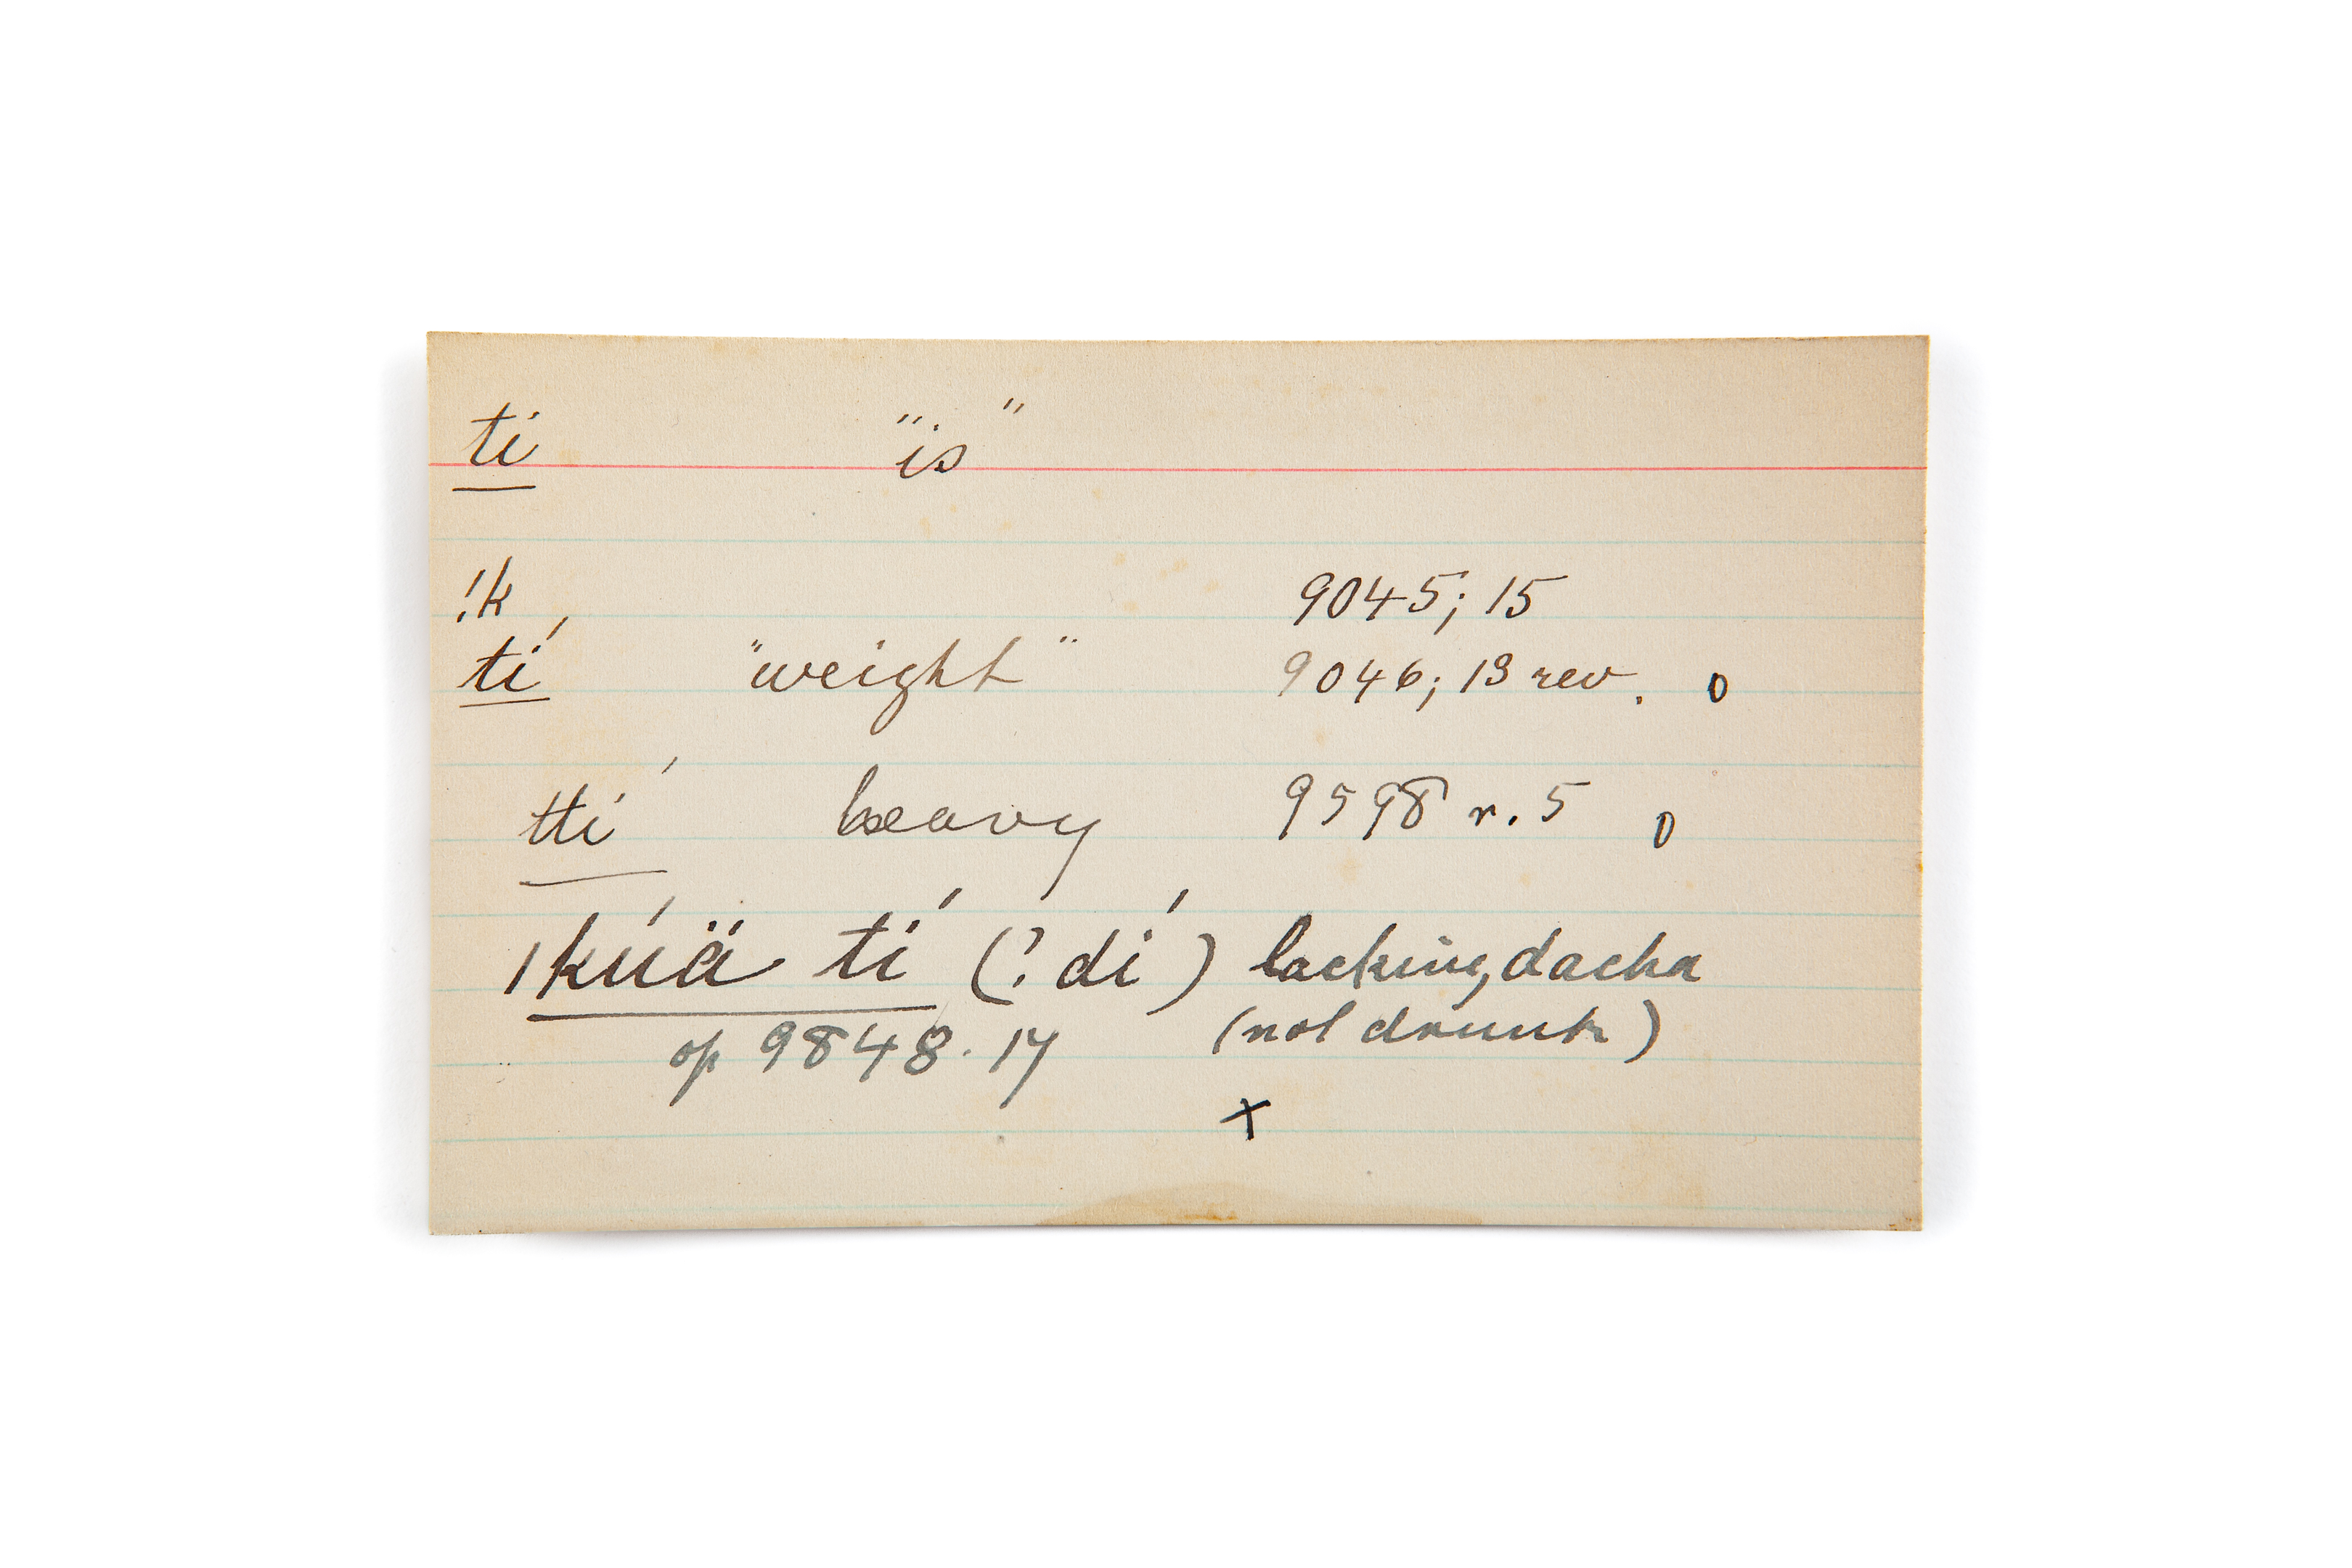 ti "is"
!k 9045; 15
tí "weight" 9046; 13 rev. 0
ttí heavy 9598 r. 5 0
|kúä tí (? dí) lacking, dacha
op 9848. 17 (not drunk)
x